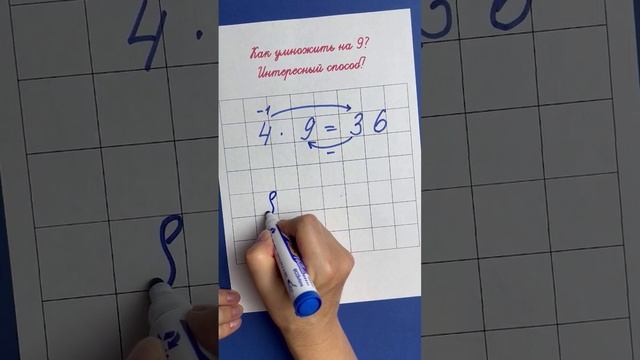 Как умножить на 9?
Интересный способ!
-1
4 · 9 = 3 6
-